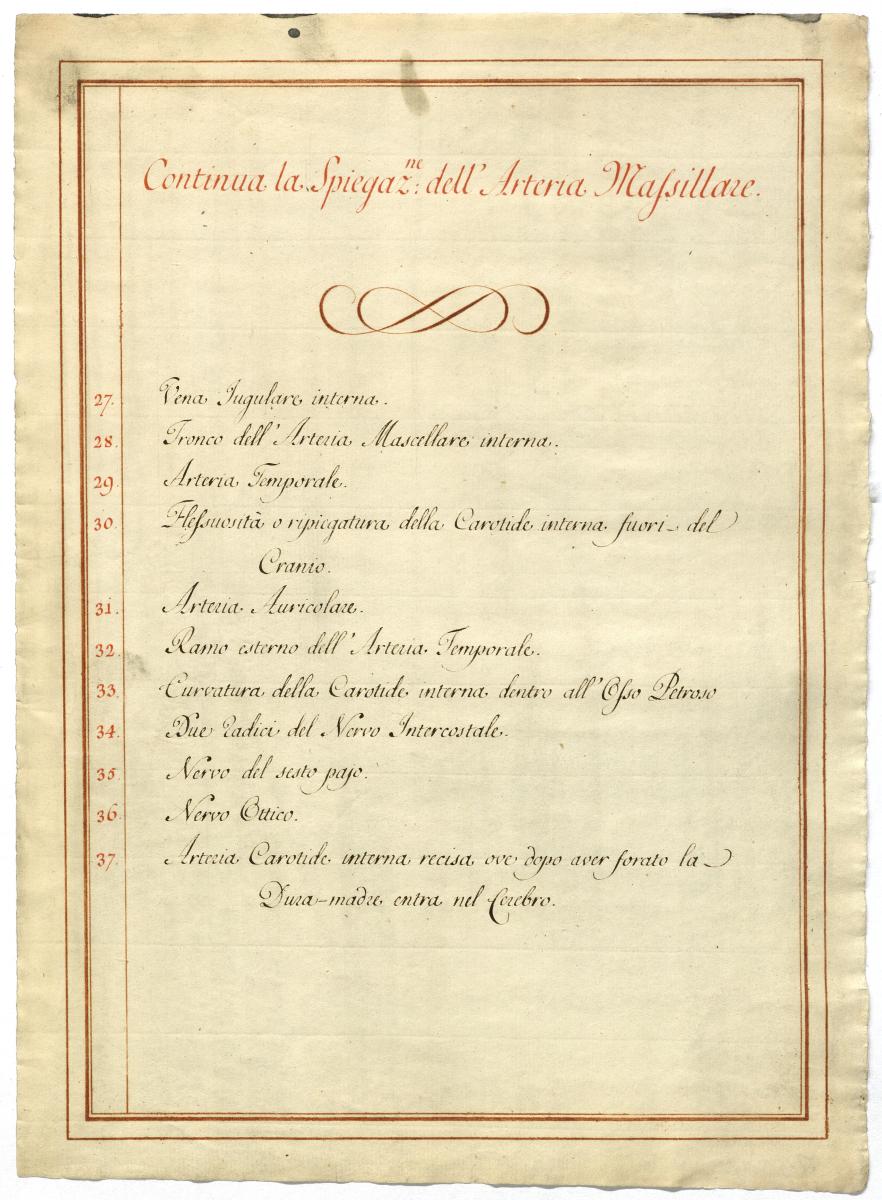 Continua la Spiegaz.ne dell' Arteria Maſsillare.
27. Vena Jugulare interna.
28. Tronco dell' Arteria Mascellare interna.
29. Arteria Temporale.
30. Fleſsuosità o ripiegatura della Carotide interna fuori del
Cranio.
31. Arteria Auricolare.
32. Ramo esterno dell' Arteria Temporale.
33. Curvatura della Carotide interna dentro all' Oſso Petroso
34. Due radici del Nervo Intercostale.
35. Nervo del sesto pajo.
36. Nervo Ottico.
37. Arteria Carotide interna recisa ove dopo aver forato la
Dura-madre entra nel Cerebro.